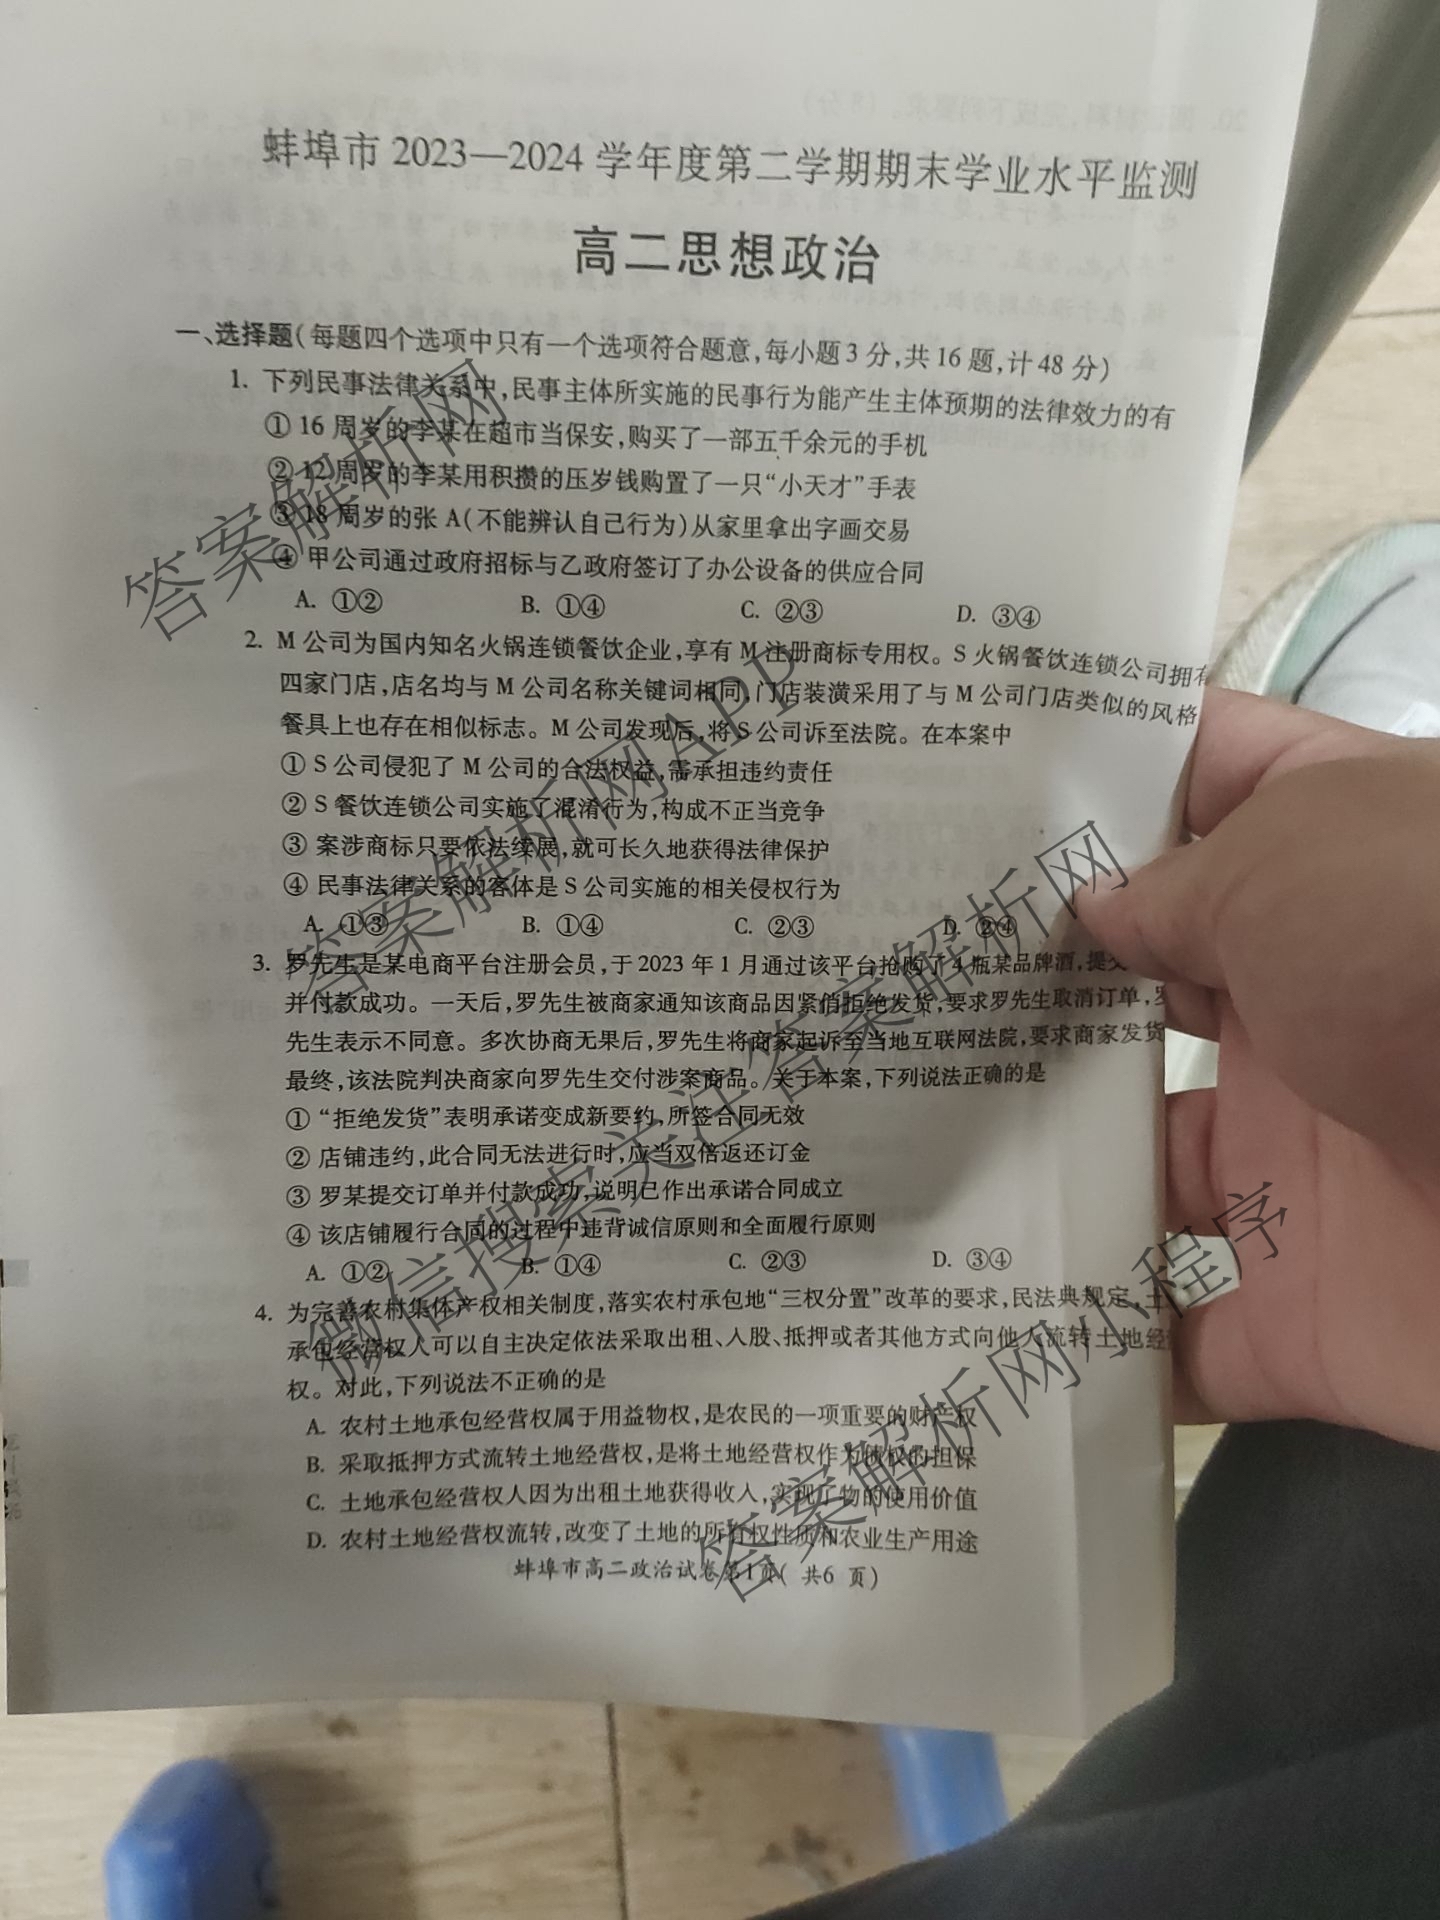 蚌埠市 2023—2024 学年度第二学期期末学业水平监测
高二思想政治
一、选择题(每题四个选项中只有一个选项符合题意,每小题 3 分,共 16 题,计 48 分)
1. 下列民事法律关系中,民事主体所实施的民事行为能产生主体预期的法律效力的有
① 16 周岁的李某在超市当保安,购买了一部五千余元的手机
② 12 周岁的李某用积攒的压岁钱购置了一只“小天才”手表
③ 18 周岁的张 A(不能辨认自己行为)从家里拿出字画交易
④ 甲公司通过政府招标与乙政府签订了办公设备的供应合同
A. ①② B. ①④ C. ②③ D. ③④
2. M 公司为国内知名火锅连锁餐饮企业,享有 M 注册商标专用权。S 火锅餐饮连锁公司拥有
四家门店,店名均与 M 公司名称关键词相同,门店装潢采用了与 M 公司门店类似的风格
餐具上也存在相似标志。M 公司发现后,将 S 公司诉至法院。在本案中
① S 公司侵犯了 M 公司的合法权益,需承担违约责任
② S 餐饮连锁公司实施了混淆行为,构成不正当竞争
③ 案涉商标只要依法续展,就可长久地获得法律保护
④ 民事法律关系的客体是 S 公司实施的相关侵权行为
A. ①③ B. ①④ C. ②③ D. ②④
3. 罗先生是某电商平台注册会员,于 2023 年 1 月通过该平台抢购了 4 瓶某品牌酒,提交
并付款成功。一天后,罗先生被商家通知该商品因紧俏拒绝发货,要求罗先生取消订单,罗
先生表示不同意。多次协商无果后,罗先生将商家起诉至当地互联网法院,要求商家发货
最终,该法院判决商家向罗先生交付涉案商品。关于本案,下列说法正确的是
① “拒绝发货”表明承诺变成新要约,所签合同无效
② 店铺违约,此合同无法进行时,应当双倍返还订金
③ 罗某提交订单并付款成功,说明已作出承诺合同成立
④ 该店铺履行合同的过程中违背诚信原则和全面履行原则
A. ①② B. ①④ C. ②③ D. ③④
4. 为完善农村集体产权相关制度,落实农村承包地“三权分置”改革的要求,民法典规定,土
承包经营权人可以自主决定依法采取出租、入股、抵押或者其他方式向他人流转土地经营
权。对此,下列说法不正确的是
A. 农村土地承包经营权属于用益物权,是农民的一项重要的财产权
B. 采取抵押方式流转土地经营权,是将土地经营权作为债权的担保
C. 土地承包经营权人因为出租土地获得收入,实现了物的使用价值
D. 农村土地经营权流转,改变了土地的所有权性质和农业生产用途
蚌埠市高二政治试卷第1页( 共6 页)
答案解析网
答案解析网APP
微信搜索关注答案解析网
答案解析网小程序